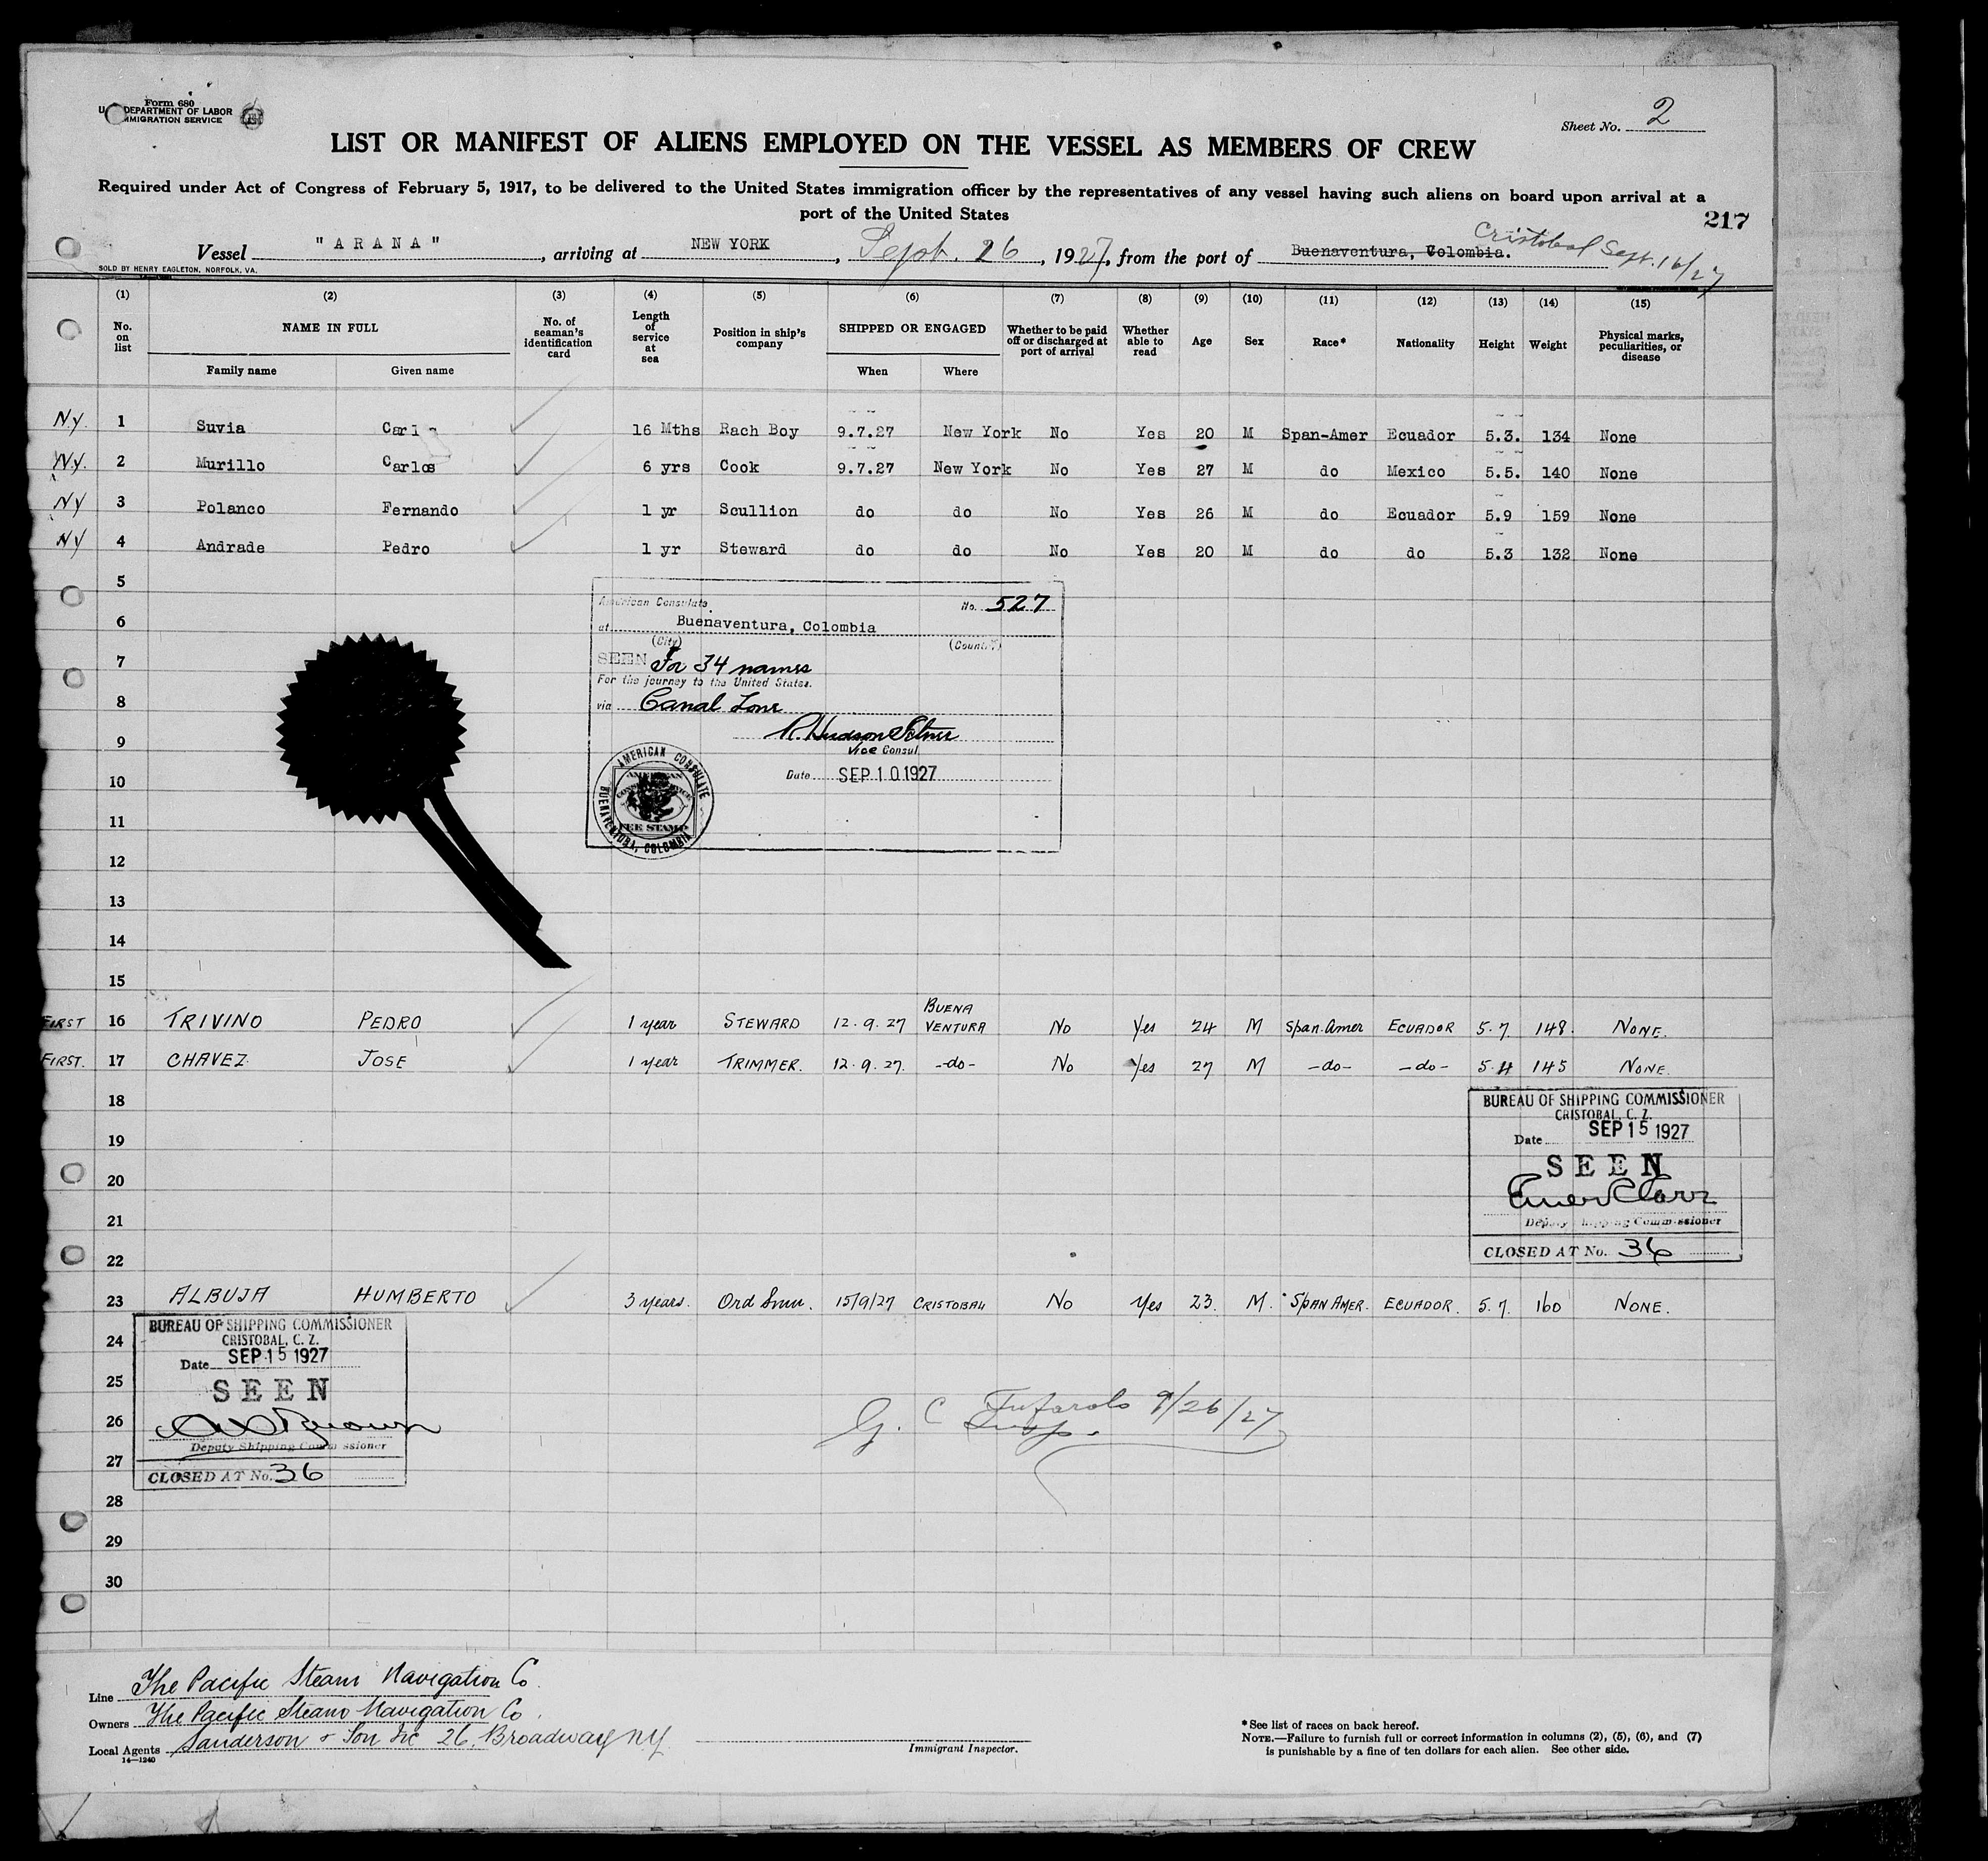 Form 680
DEPARTMENT OF LABOR
IMMIGRATION SERVICE
Sheet No. 2
LIST OR MANIFEST OF ALIENS EMPLOYED ON THE VESSEL AS MEMBERS OF CREW
Required under Act of Congress of February 5, 1917, to be delivered to the United States immigration officer by the representatives of any vessel having such aliens on board upon arrival at a
port of the United States
217
Vessel "ARANA", arriving at NEW YORK, Sept. 26, 1927, from the port of Buenaventura, Colombia. Cristobal Sept. 16/27
SOLD BY HENRY EAGLETON, NORFOLK, VA.
(1) (2) (3) (4) (5) (6) (7) (8) (9) (10) (11) (12) (13) (14) (15)
No. on list NAME IN FULL No. of seaman's identification card Length of service at sea Position in ship's company SHIPPED OR ENGAGED Whether to be paid off or discharged at port of arrival Whether able to read Age Sex Race* Nationality Height Weight Physical marks, peculiarities, or disease
Family name Given name When Where
N.Y. 1 Suvia Carl 16 Mths Rach Boy 9.7.27 New York No Yes 20 M Span-Amer Ecuador 5.3. 134 None
N.Y. 2 Murillo Carlos 6 yrs Cook 9.7.27 New York No Yes 27 M do Mexico 5.5. 140 None
NY 3 Polanco Fernando 1 yr Scullion do do No Yes 26 M do Ecuador 5.9 159 None
NY 4 Andrade Pedro 1 yr Steward do do No Yes 20 M do do 5.3 132 None
5
American Consulate No. 527
6
at Buenaventura, Colombia
(City) (Country)
7
SEEN For 34 names
For the journey to the United States.
8
via Canal Zone
9
R. Hudson
Vice Consul
10
Date SEP 10 1927
AMERICAN CONSULATE
AMERICAN CONSULAR SERVICE
FEE STAMP
BUENAVENTURA, COLOMBIA
11
12
13
14
15
FIRST 16 TRIVINO PEDRO 1 year STEWARD 12.9.27 BUENA VENTURA No Yes 24 M Span.Amer ECUADOR 5.7. 148. NONE.
FIRST. 17 CHAVEZ JOSE 1 year TRIMMER. 12.9.27. -do- No Yes 27 M -do- -do- 5.4 145 NONE.
18
BUREAU OF SHIPPING COMMISSIONER
CRISTOBAL, C. Z.
19
Date SEP 15 1927
20
SEEN
Deputy Shipping Commissioner
21
22
CLOSED AT No. 36
23 ALBUJA HUMBERTO 3 years. Ord Smn. 15/9/27 CRISTOBAL No Yes 23. M. SPAN AMER. ECUADOR. 5.7. 160 NONE.
BUREAU OF SHIPPING COMMISSIONER
24
CRISTOBAL, C. Z.
Date SEP 15 1927
25
SEEN
26
Brown
Deputy Shipping Commissioner
G. C. 9/26/27
Insp.
27
CLOSED AT No. 36
28
29
30
Line The Pacific Steam Navigation Co.
Owners The Pacific Steam Navigation Co.
Local Agents Sanderson & Son Inc 26, Broadway N.Y.
14—1240
Immigrant Inspector.
*See list of races on back hereof.
NOTE.—Failure to furnish full or correct information in columns (2), (5), (6), and (7)
is punishable by a fine of ten dollars for each alien. See other side.